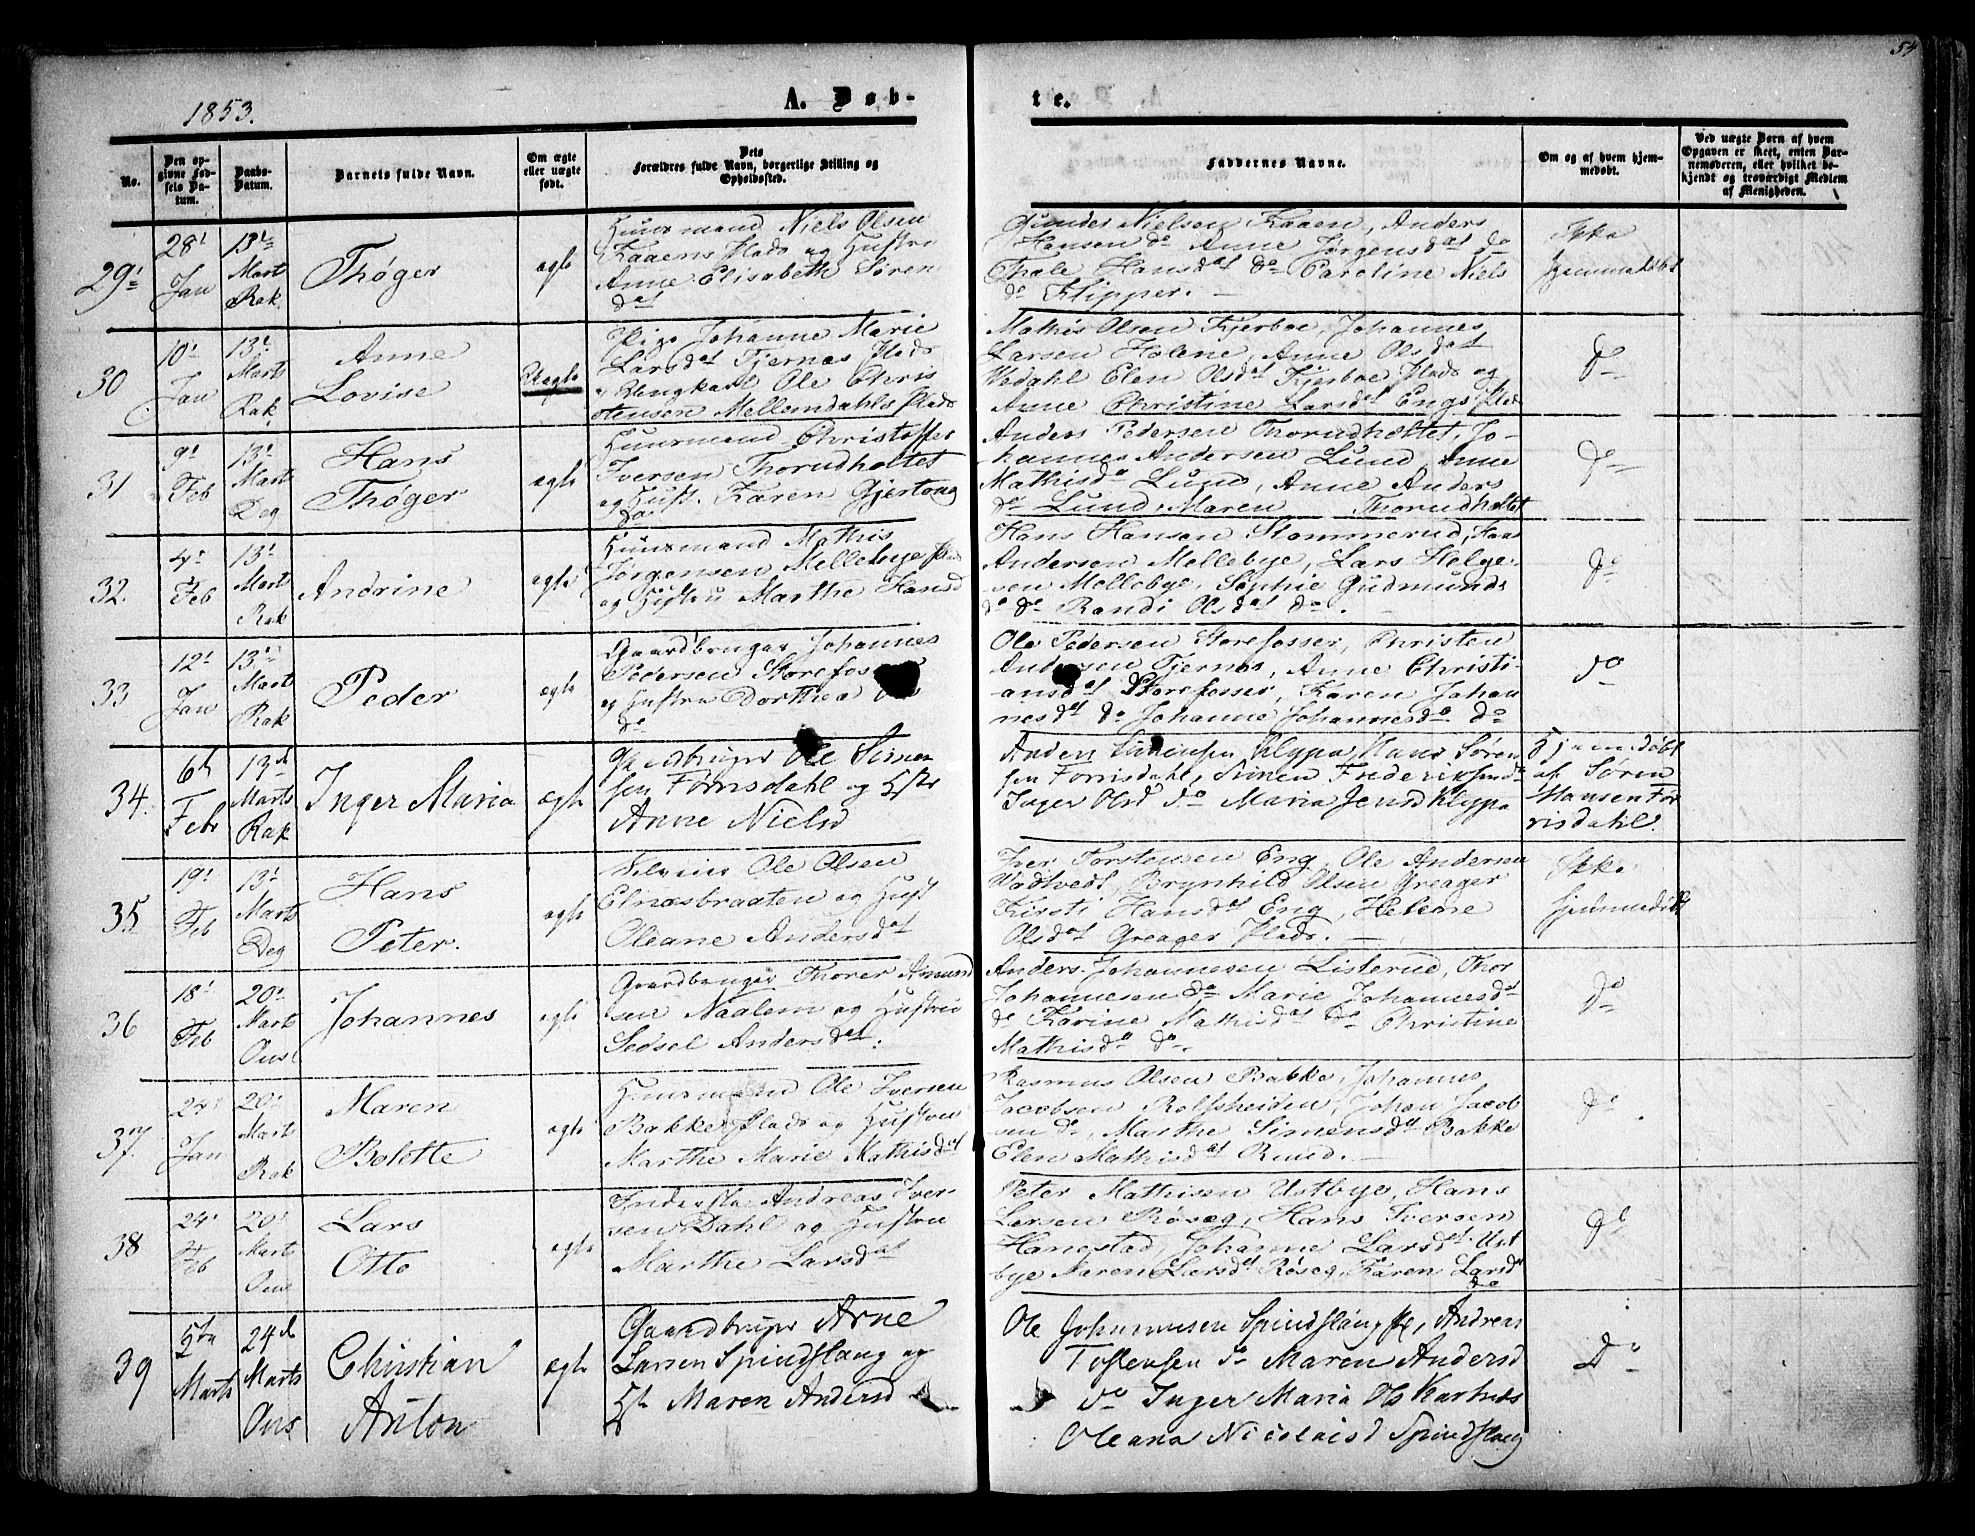 54
1853.
A. Døb-
te.
No.
Den op-
givne Fød-
sels Da-
tum.
Daabs-
Datum.
Barnets fulde Navn.
Om ægte
eller uægte
født.
Dets
Forældres fulde Navn, borgerlige Stilling og
Opholdssted.
Faddernes Navne.
Om og af hvem hjem-
medøbt.
Ved uægte Børn af hvem
Opgaven er skeet, enten Bar-
nemoderen, eller hvilket be-
kjendt og troværdigt Medlem
af Menigheden.
29
28
Jan
13
Mart
Rak
Thøger
ægte
Huusmand Niels Olsen
Kaaens Plads og Hustru
Anne Elisabeth Søren
dat
Nielsen Kaaen, Anders
Hansen do Anne Jørgensdat do
Thale Hansdat do Caroline Niels
do Klipper. —
Ikke
hjemmedøbt
30
10
Jan
13
Marts
Rak
Anne
Lovise
Uægte
Pige Johanne Marie
Larsdat Tjernæs Plads
og Ungkarl Ole Chris
tensen Mellemdahls Plads
Mathis Olsen Kjerboe, Johannes
Larsen Holene, Anne Olsdat
Wadahl Elen Olsdat Kjerboe Plads og
Anne Christine Larsdat Engs Plads
do
31
9
Feb
13
Mart
Deg
Hans
Thøger
ægte
Huusmand Christoffer
Iversen Thorudholtet
og Hust. Karen Gjertong
dat
Anders Pedersen Thorudholtet, Jo-
hannes Andersen Lund, Anne
Mathisdo Lund, Anne Anders
do Lund, Maren Thorudholtet
do
32.
4
Feb
13
Mart
Rak
Andrine
ægte
Huusmand Mathis
Jørgensen Mellebye Plads
og Hustru Marthe Hansd
Hans Hansen Stommerud, Hans
Andersen Mellebye, Lars Helge-
sen Mellebye, Sophie Gudmunds
do do Randi Olsdat do.
do
33
12
Jan
13
Mart
Rak
Peder
ægte
Gaardbruger Johannes
Pedersen Storefos
og Hustru Dorthea
do
Ole Pedersen Storefosser, Christen
Andersen Tjernæs, Anne Christi-
ansdat Storefosser, Karen Johan
nesdat do Johanne Johannesdo do
do
34.
6te
Feb
13de
Marts
Rak
Inger Maria
ægte
Ole Simen
sen Førrisdahl og Hstr
Anne Nielsd
Anders Simensen Klypa, Hans Søren
sen Førrisdahl, Simen Frederiksen do
Inger Olsd do Maria Jensd Klypa
Hjemdøbt
af Søren
Hansen Før
risdahl.
35
19
Feb
13
Marts
Deg
Hans
Peter.
ægte
Selveier Ole Olsen
Elnæsbraaten og Hust
Oleane Andersdat
Iver Torstensen Eng, Ole Andersen
Wadtvedt, Brynhild Olsen Greager
Kirsti Hansdat Eng, Helene
Olsdat Greager Plads. —
Ikke
hjemmedøbt
36
18
Feb
20
Marts
Ous
Johannes
ægte
Gaardbruger Thorer Amund
sen Naalem og Hustru
Sedsel Andersdat.
Anders Johannesen Listerud, Thor
Johannesen do Marie Johannesdat
do Karine Mathisdat do Christine
Mathisdo do.
do
37.
24
Jan
20
Mart
Rak
Maren
Bolette
ægte
Huusmand Ole Iversen
Bakke Plads og Hustru
Marthe Marie Mathisdat
Rasmus Olsen Bakke, Johannes
Jacobsen Rolfsheiden, Johan Jacob
sen do, Marthe Simensdat Bakke
Elen Mathisdat Ruud. —
do
38
24
Feb
20
Marts
Ous
Lars
Otto
ægte
Inderste Andreas Iver-
sen Dahl og Hustru
Marthe Larsdat
Peter Mathisen Ustbye, Hans
Larsen Røseg, Hans Iversen
Hanestad, Johanne Larsdat Ust
bye Maren Larsdat Røseg, Karen Larsdat
do
do
39
5te
Marts
24de
Marts
Ous
Christian
Anton
ægte
Gaardbruger Arne
Larsen Spindslaug og
Hst Maren Andersd
Ole Johannesen Spindslaug, Andreas
Tostensen do Maren Andersd
do Inger Maria
Oleana Nicolaisd Spindslaug
Do